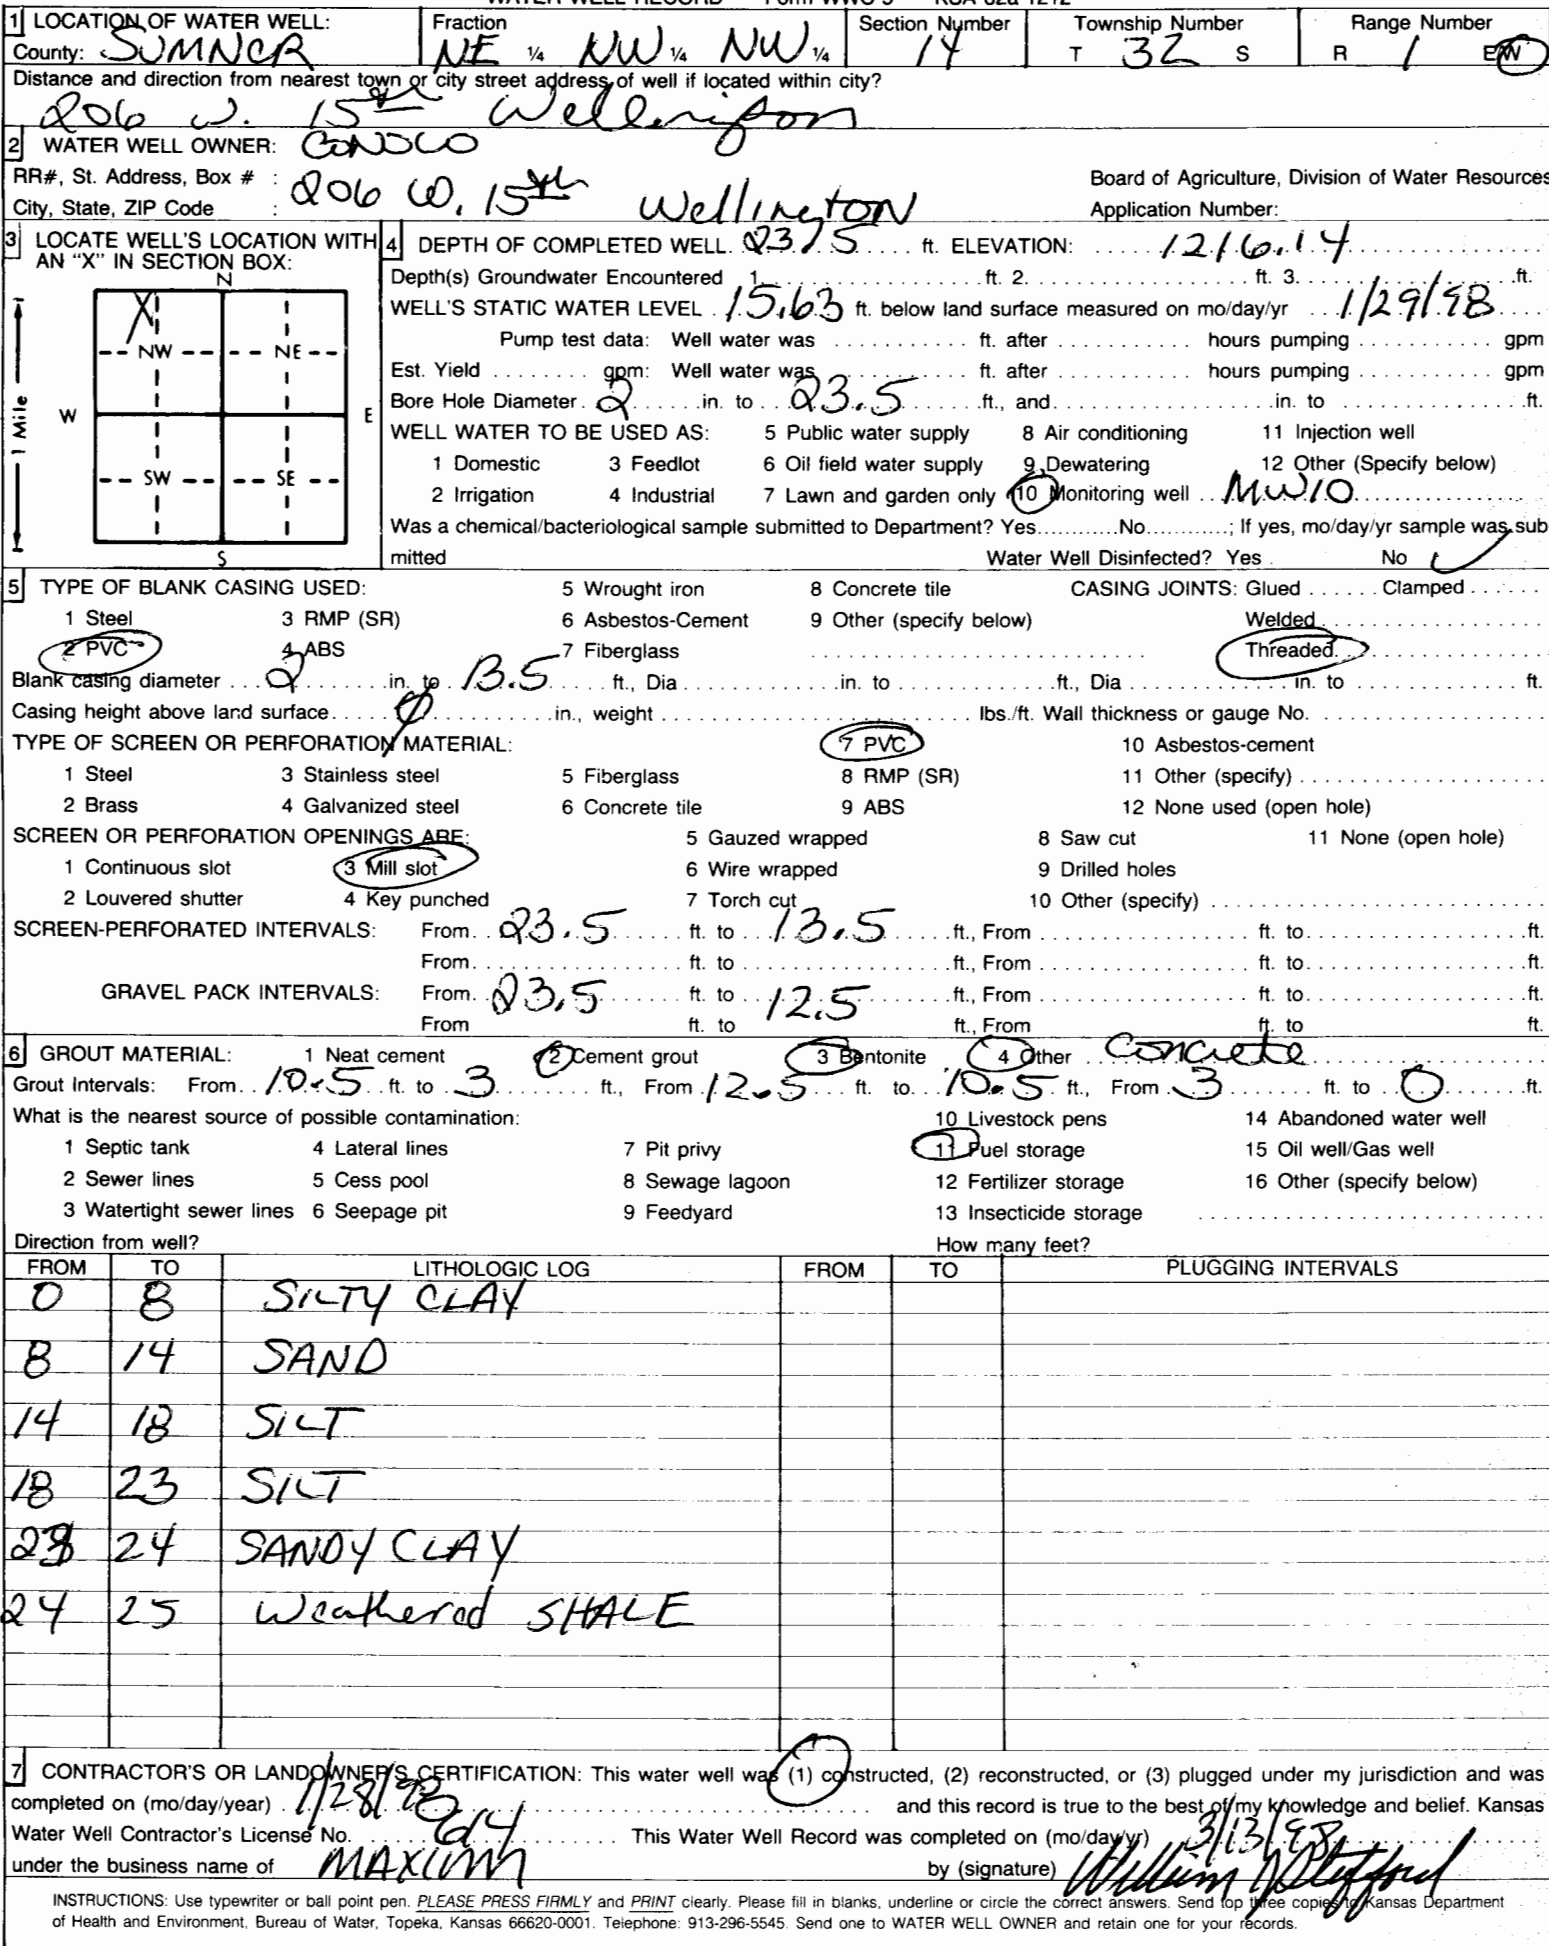 WATER WELL RECORD Form WWC-5 KSA 82a-1212
1 LOCATION OF WATER WELL: Fraction Section Number Township Number Range Number
County: SUMNER NE ¼ NW ¼ NW ¼ 14 T 32 S R 1 E/W
Distance and direction from nearest town or city street address of well if located within city?
206 W. 15th Wellington
2 WATER WELL OWNER: CONOCO
RR#, St. Address, Box # : 206 W. 15th Wellington Board of Agriculture, Division of Water Resources
City, State, ZIP Code : Application Number:
3 LOCATE WELL'S LOCATION WITH AN "X" IN SECTION BOX:
N
X
NW NE
W E
1 Mile
SW SE
S
4 DEPTH OF COMPLETED WELL. 23.5 ft. ELEVATION: 1216.14
Depth(s) Groundwater Encountered 1. ft. 2. ft. 3. ft.
WELL'S STATIC WATER LEVEL . 15.63 ft. below land surface measured on mo/day/yr 1/29/98
Pump test data: Well water was ft. after hours pumping gpm
Est. Yield gpm: Well water was ft. after hours pumping gpm
Bore Hole Diameter. 2 in. to 23.5 ft., and in. to ft.
WELL WATER TO BE USED AS: 5 Public water supply 8 Air conditioning 11 Injection well
1 Domestic 3 Feedlot 6 Oil field water supply 9 Dewatering 12 Other (Specify below)
2 Irrigation 4 Industrial 7 Lawn and garden only 10 Monitoring well MW10
Was a chemical/bacteriological sample submitted to Department? Yes No ; If yes, mo/day/yr sample was sub
mitted Water Well Disinfected? Yes No ✓
5 TYPE OF BLANK CASING USED: 5 Wrought iron 8 Concrete tile CASING JOINTS: Glued Clamped
1 Steel 3 RMP (SR) 6 Asbestos-Cement 9 Other (specify below) Welded
2 PVC 4 ABS 7 Fiberglass Threaded
Blank casing diameter 2 in. to 13.5 ft., Dia in. to ft., Dia in. to ft.
Casing height above land surface 0 in., weight lbs./ft. Wall thickness or gauge No.
TYPE OF SCREEN OR PERFORATION MATERIAL: 7 PVC 10 Asbestos-cement
1 Steel 3 Stainless steel 5 Fiberglass 8 RMP (SR) 11 Other (specify)
2 Brass 4 Galvanized steel 6 Concrete tile 9 ABS 12 None used (open hole)
SCREEN OR PERFORATION OPENINGS ARE: 5 Gauzed wrapped 8 Saw cut 11 None (open hole)
1 Continuous slot 3 Mill slot 6 Wire wrapped 9 Drilled holes
2 Louvered shutter 4 Key punched 7 Torch cut 10 Other (specify)
SCREEN-PERFORATED INTERVALS: From 23.5 ft. to 13.5 ft., From ft. to ft.
From ft. to ft., From ft. to ft.
GRAVEL PACK INTERVALS: From 23.5 ft. to 12.5 ft., From ft. to ft.
From ft. to ft., From ft. to ft.
6 GROUT MATERIAL: 1 Neat cement 2 Cement grout 3 Bentonite 4 Other Concrete
Grout Intervals: From 10.5 ft. to 3 ft., From 12.5 ft. to 10.5 ft., From 3 ft. to 0 ft.
What is the nearest source of possible contamination: 10 Livestock pens 14 Abandoned water well
1 Septic tank 4 Lateral lines 7 Pit privy 11 Fuel storage 15 Oil well/Gas well
2 Sewer lines 5 Cess pool 8 Sewage lagoon 12 Fertilizer storage 16 Other (specify below)
3 Watertight sewer lines 6 Seepage pit 9 Feedyard 13 Insecticide storage
Direction from well? How many feet?
FROM TO LITHOLOGIC LOG FROM TO PLUGGING INTERVALS
0 8 SILTY CLAY
8 14 SAND
14 18 SILT
18 23 SILT
23 24 SANDY CLAY
24 25 Weathered SHALE
7 CONTRACTOR'S OR LANDOWNER'S CERTIFICATION: This water well was (1) constructed, (2) reconstructed, or (3) plugged under my jurisdiction and was
completed on (mo/day/year) 1/28/98 and this record is true to the best of my knowledge and belief. Kansas
Water Well Contractor's License No. This Water Well Record was completed on (mo/day/yr) 3/13/98
under the business name of MAXIM by (signature) William
INSTRUCTIONS: Use typewriter or ball point pen. PLEASE PRESS FIRMLY and PRINT clearly. Please fill in blanks, underline or circle the correct answers. Send top three copies to Kansas Department
of Health and Environment, Bureau of Water, Topeka, Kansas 66620-0001. Telephone: 913-296-5545. Send one to WATER WELL OWNER and retain one for your records.